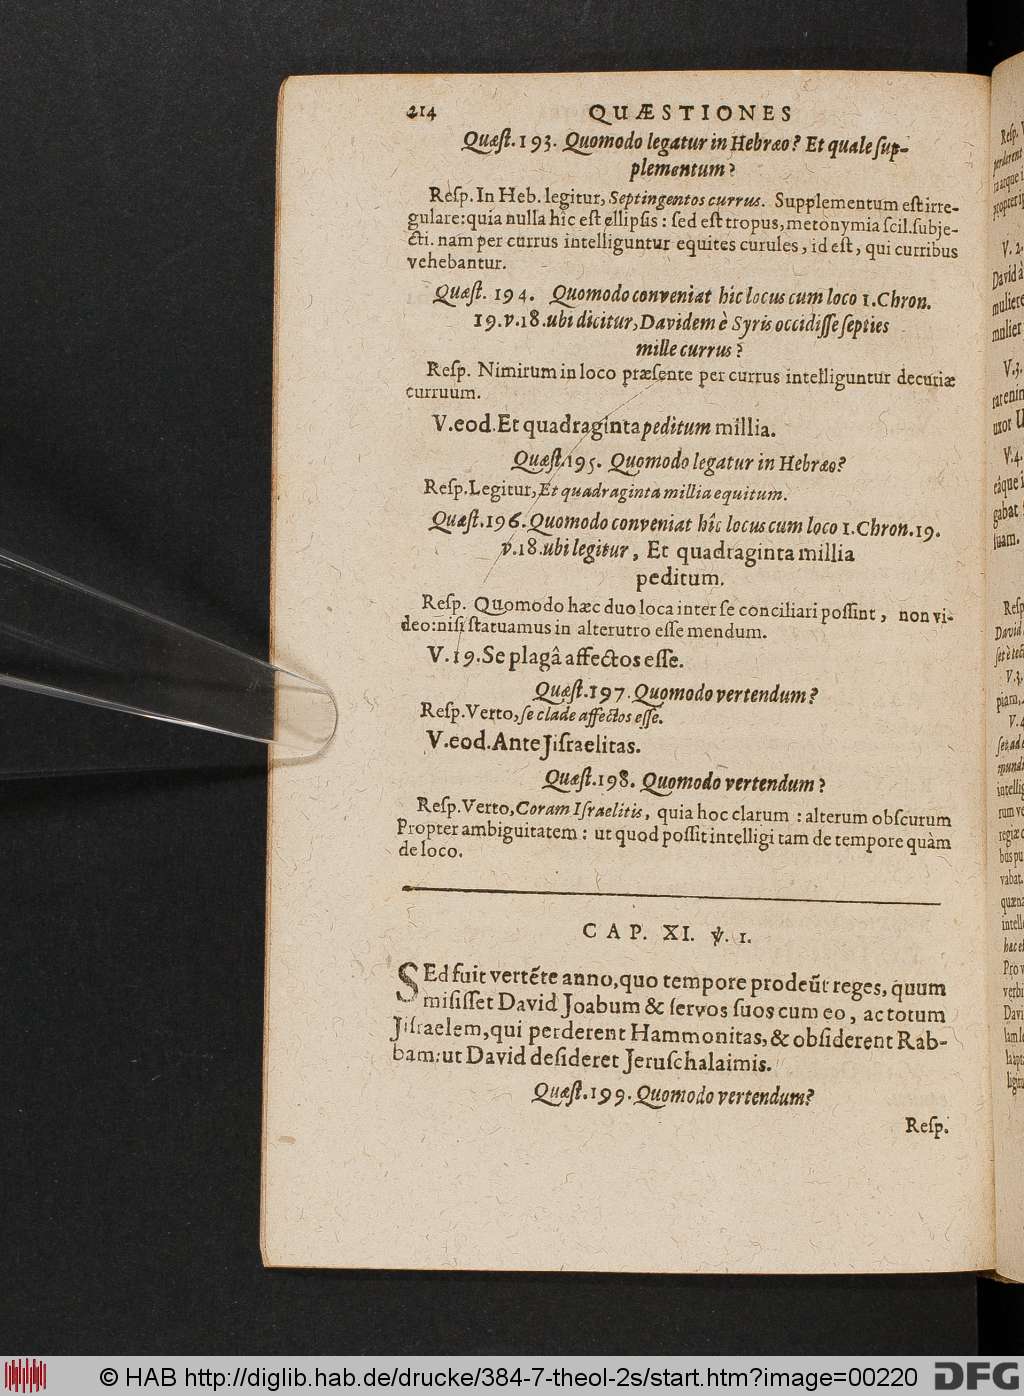 214 QUÆSTIONES
Quæſt. 193. Quomodo legatur in Hebræo? Et quale ſup-
plementum?
Reſp. In Heb. legitur, Septingentos currus. Supplementum eſt irre-
gulare: quia nulla hîc eſt ellipſis: ſed eſt tropus, metonymia ſcil. ſubje-
cti. nam per currus intelliguntur equites curules, id eſt, qui curribus
vehebantur.
Quæſt. 194. Quomodo conveniat hîc locus cum loco 1. Chron.
19. v. 18. ubi dicitur, Davidem è Syris occidiſſe ſepties
mille currus?
Reſp. Nimirum in loco præſente per currus intelliguntur decuriæ
curruum.
V. eod. Et quadraginta peditum millia.
Quæſt. 195. Quomodo legatur in Hebræo?
Reſp. Legitur, Et quadraginta millia equitum.
Quæſt. 196. Quomodo conveniat hîc locus cum loco 1. Chron. 19.
v. 18. ubi legitur, Et quadraginta millia
peditum.
Reſp. Quomodo hæc duo loca inter ſe conciliari poſſint, non vi-
deo: niſi ſtatuamus in alterutro eſſe mendum.
V. 19. Se plagâ affectos eſſe.
Quæſt. 197. Quomodo vertendum?
Reſp. Verto, ſe clade affectos eſſe.
V. eod. Ante Jiſraelitas.
Quæſt. 198. Quomodo vertendum?
Reſp. Verto, Coram Iſraelitis, quia hoc clarum: alterum obſcurum
Propter ambiguitatem: ut quod poſſit intelligi tam de tempore quàm
de loco.
CAP. XI. ℣. 1.
SEd fuit vertẽte anno, quo tempore prodeũt reges, quum
miſiſſet David Joabum & ſervos ſuos cum eo, ac totum
Jiſraelem, qui perderent Hammonitas, & obſiderent Rab-
bam: ut David deſideret Jeruſchalaimis.
Quæſt. 199. Quomodo vertendum?
Reſp.
© HAB http://diglib.hab.de/drucke/384-7-theol-2s/start.htm?image=00220 DFG